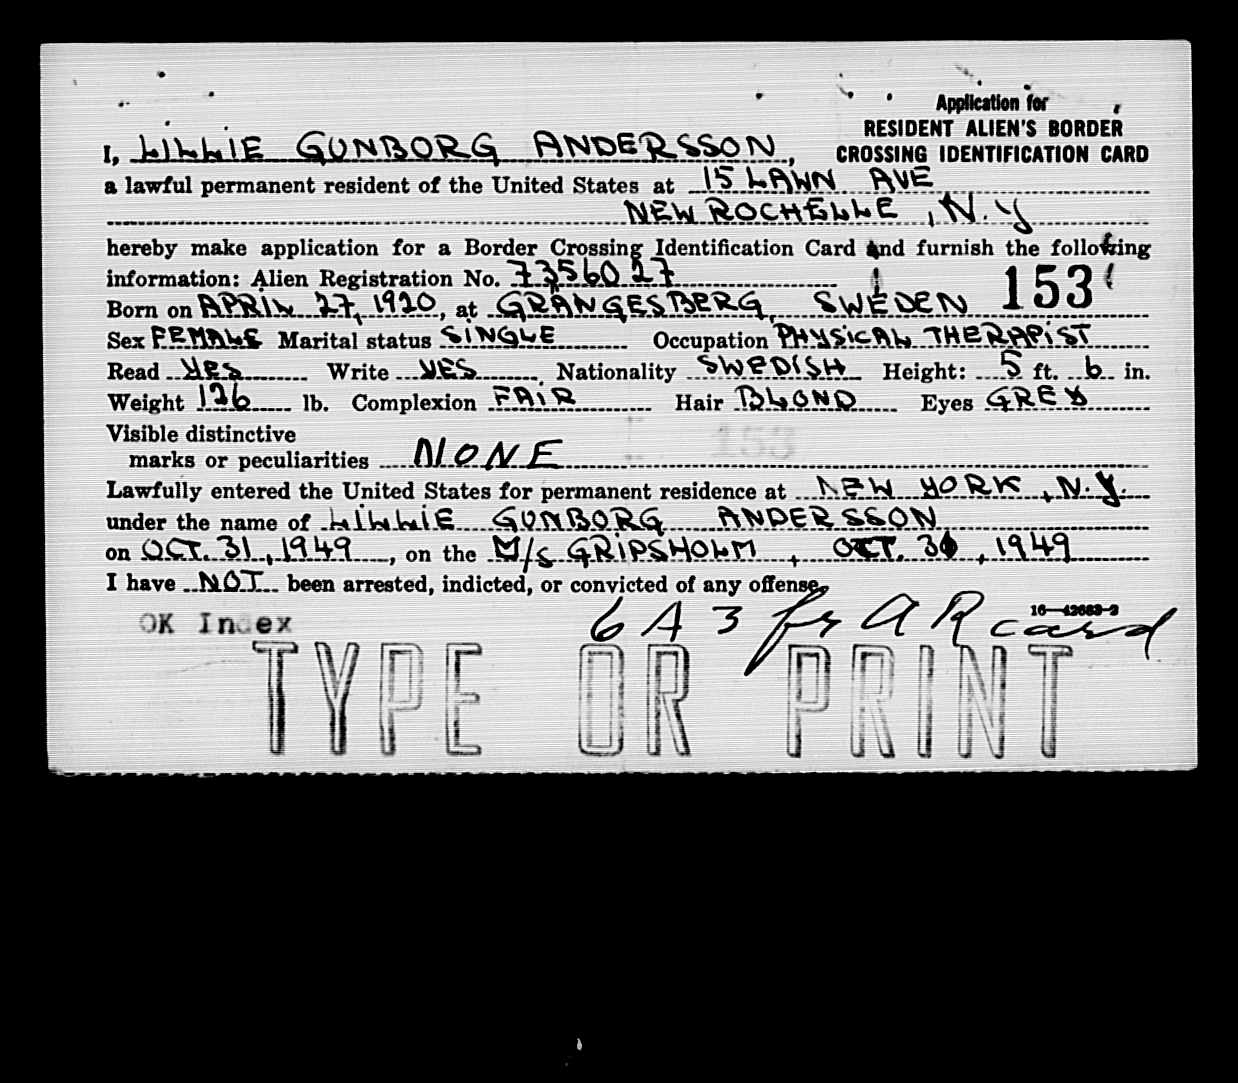 Application for
RESIDENT ALIEN'S BORDER
CROSSING IDENTIFICATION CARD
I, LILLIE GUNBORG ANDERSSON,
a lawful permanent resident of the United States at 15 LAWN AVE
NEW ROCHELLE, N.Y
hereby make application for a Border Crossing Identification Card and furnish the following
information: Alien Registration No. 7356027
153
Born on APRIL 27, 1920, at GRÄNGESBERG, SWEDEN
Sex FEMALE Marital status SINGLE Occupation PHYSICAL THERAPIST
Read YES Write YES, Nationality SWEDISH Height: 5 ft. 6 in.
Weight 126 lb. Complexion FAIR Hair BLOND Eyes GREY
Visible distinctive 153
marks or peculiarities NONE
Lawfully entered the United States for permanent residence at NEW YORK, N.Y.
under the name of LILLIE GUNBORG ANDERSSON
on OCT. 31, 1949, on the M/S GRIPSHOLM, OCT. 30, 1949
I have NOT been arrested, indicted, or convicted of any offense.
16—42683-2
OK Index 6 A 3 fr A R card
TYPE OR PRINT